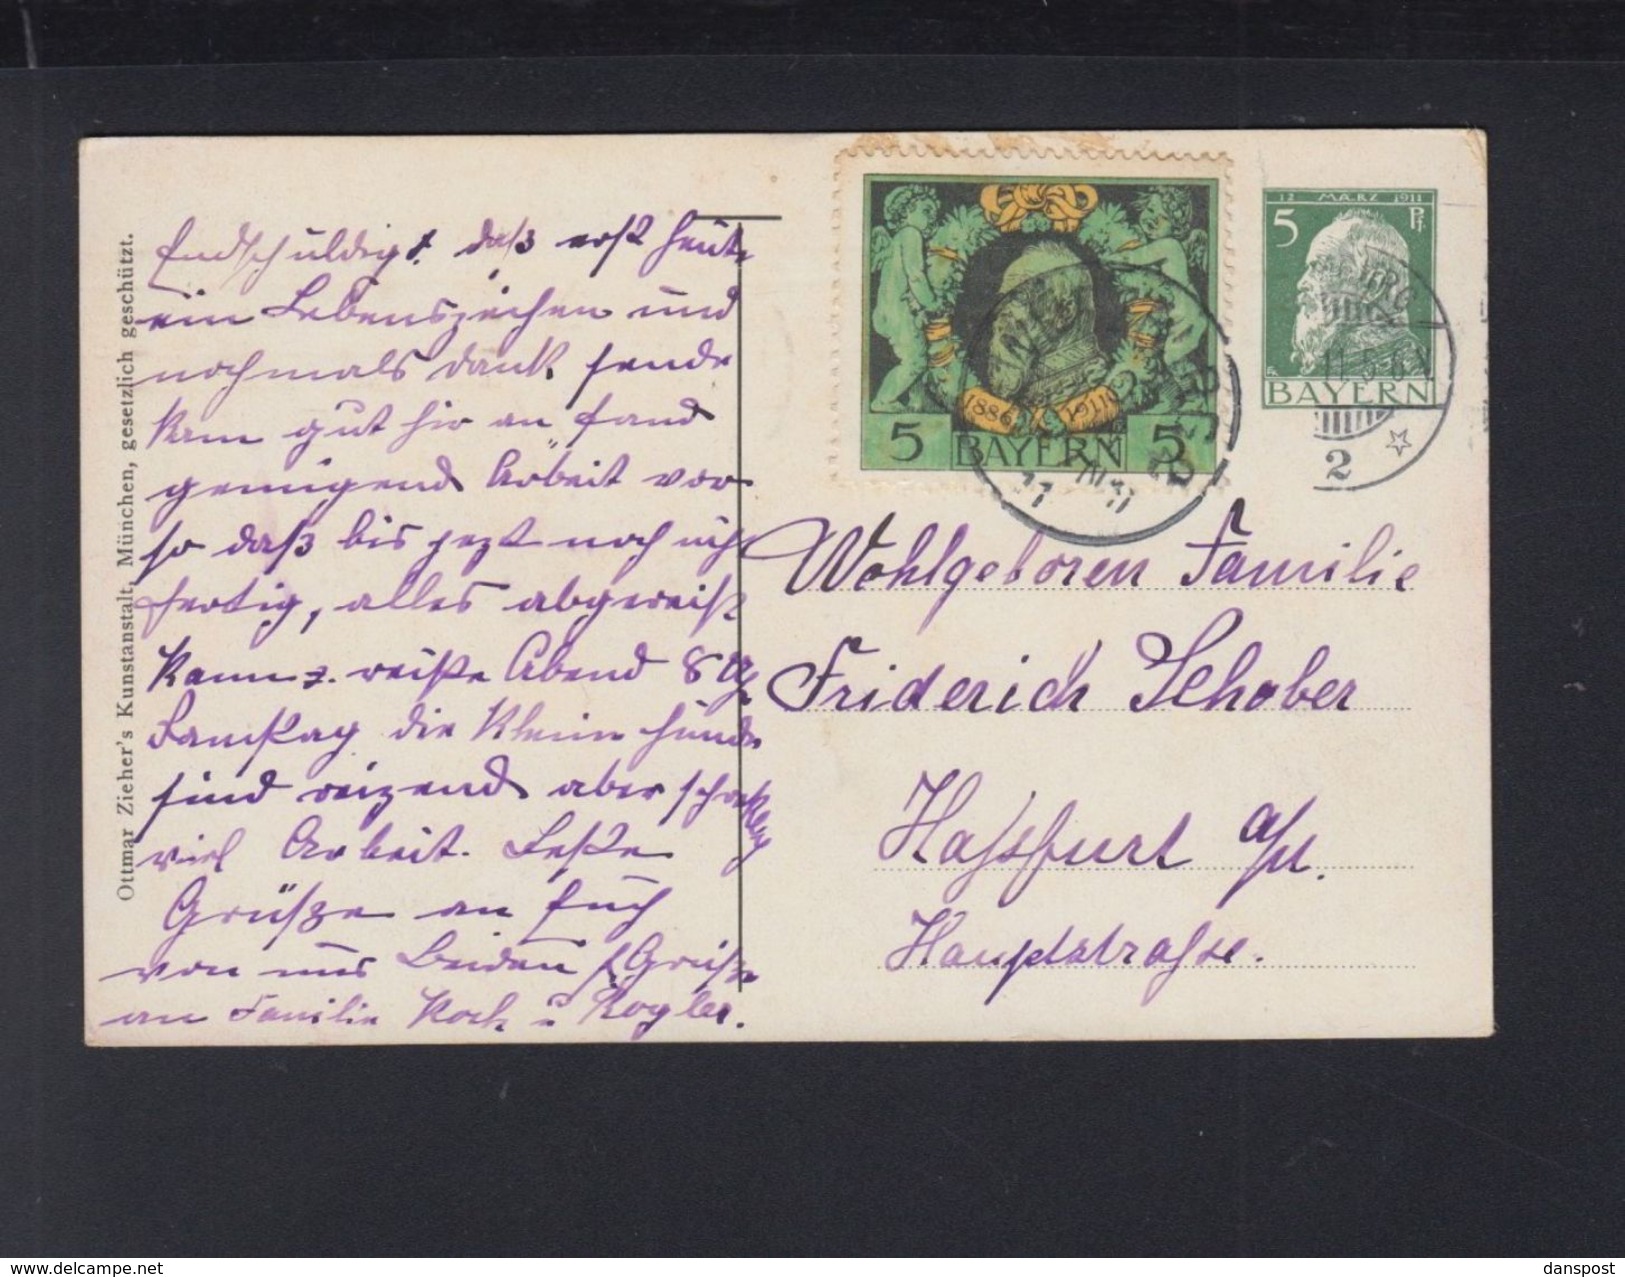 Entschuldigt daß erst heute
ein Lebenszeichen und
nochmals dank sende
kam gut hir an fand
genügend Arbeit vor
so daß bis jezt noch nicht
fertig, alles abgereist
kamen z. reiste Abend 8 Uhr
Samstag die klein Hunde
sind reizend aber schrecklich
viel Arbeit. Beste
Grüße an Euch
von uns Beiden Grüße
an Familie Koch u Kogler.
Ottmar Zieher's Kunstanstalt, München, gesetzlich geschützt.
1886 1911
5 BAYERN 5
12 MÄRZ 1911
5 Pf.
BAYERN
2
Wohlgeboren Familie
Friderich Schober
Hassfurt a/M.
Hauptstrasse.
danspost